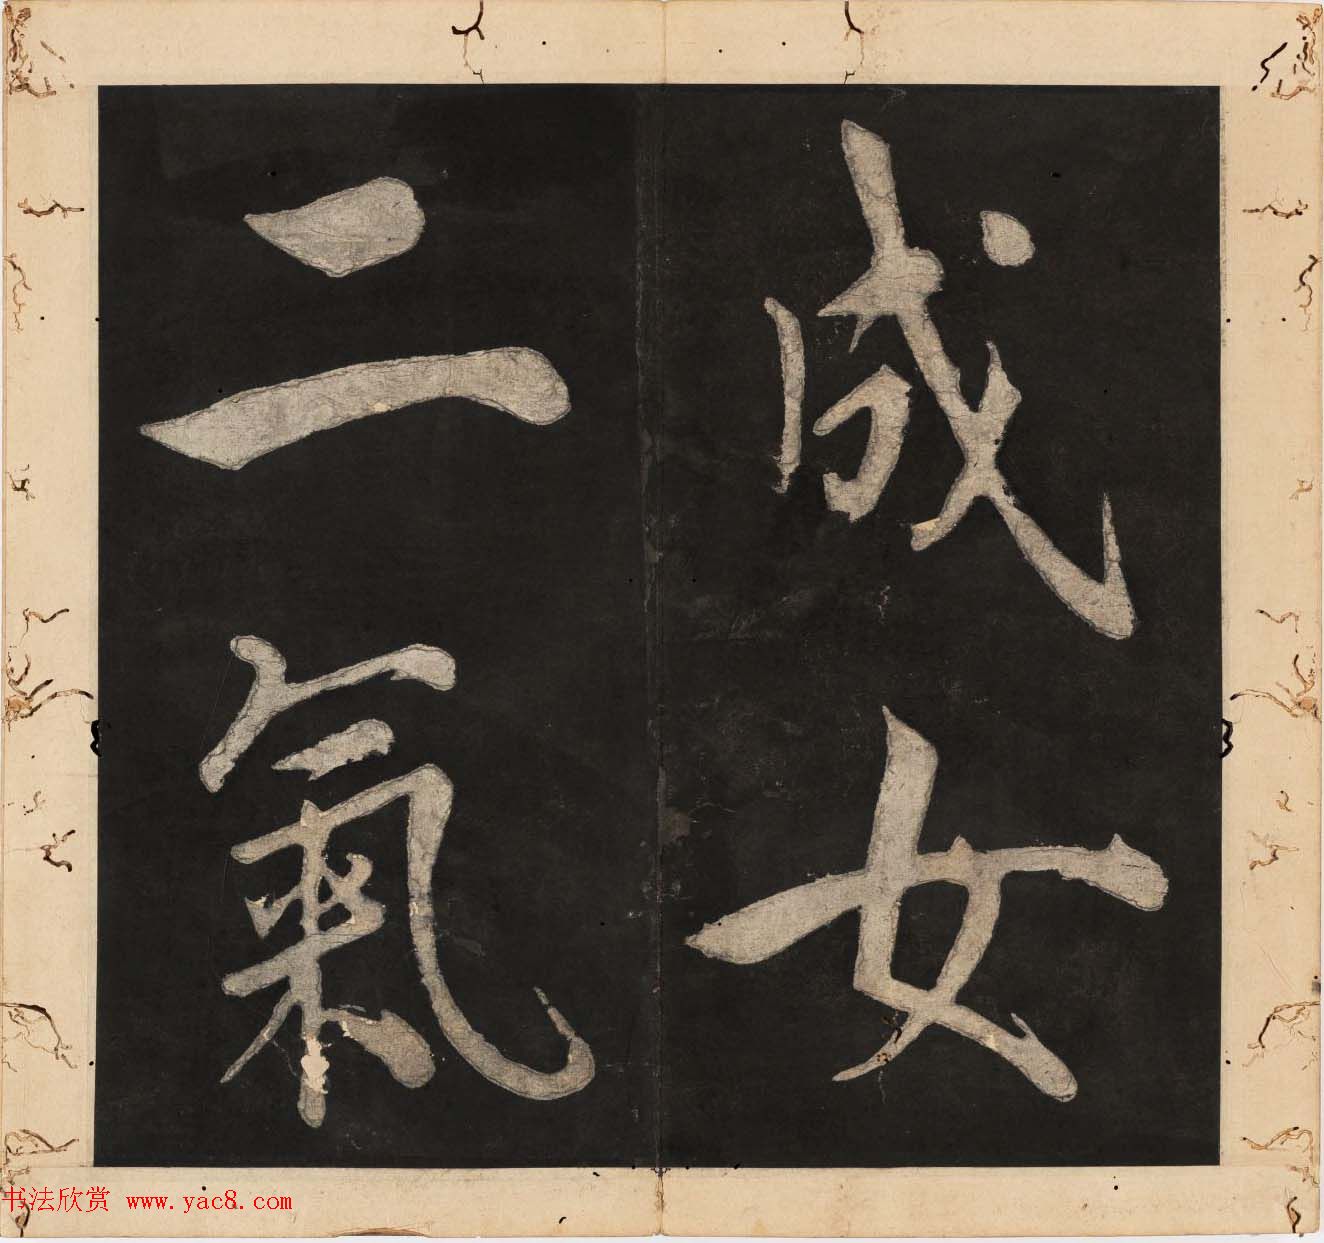 成女
二氣
书法欣赏 www.yac8.com